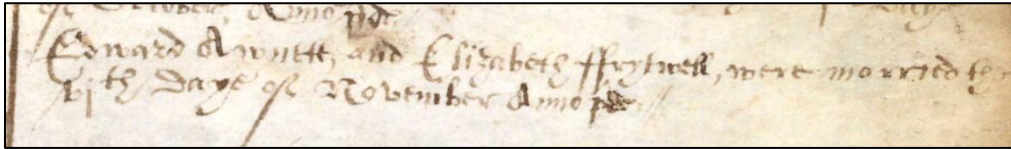 of October, Anno pdc
Edward Awntt, and Elizabeth ffrytwell, were morried the
vjth daye of November Anno pdc